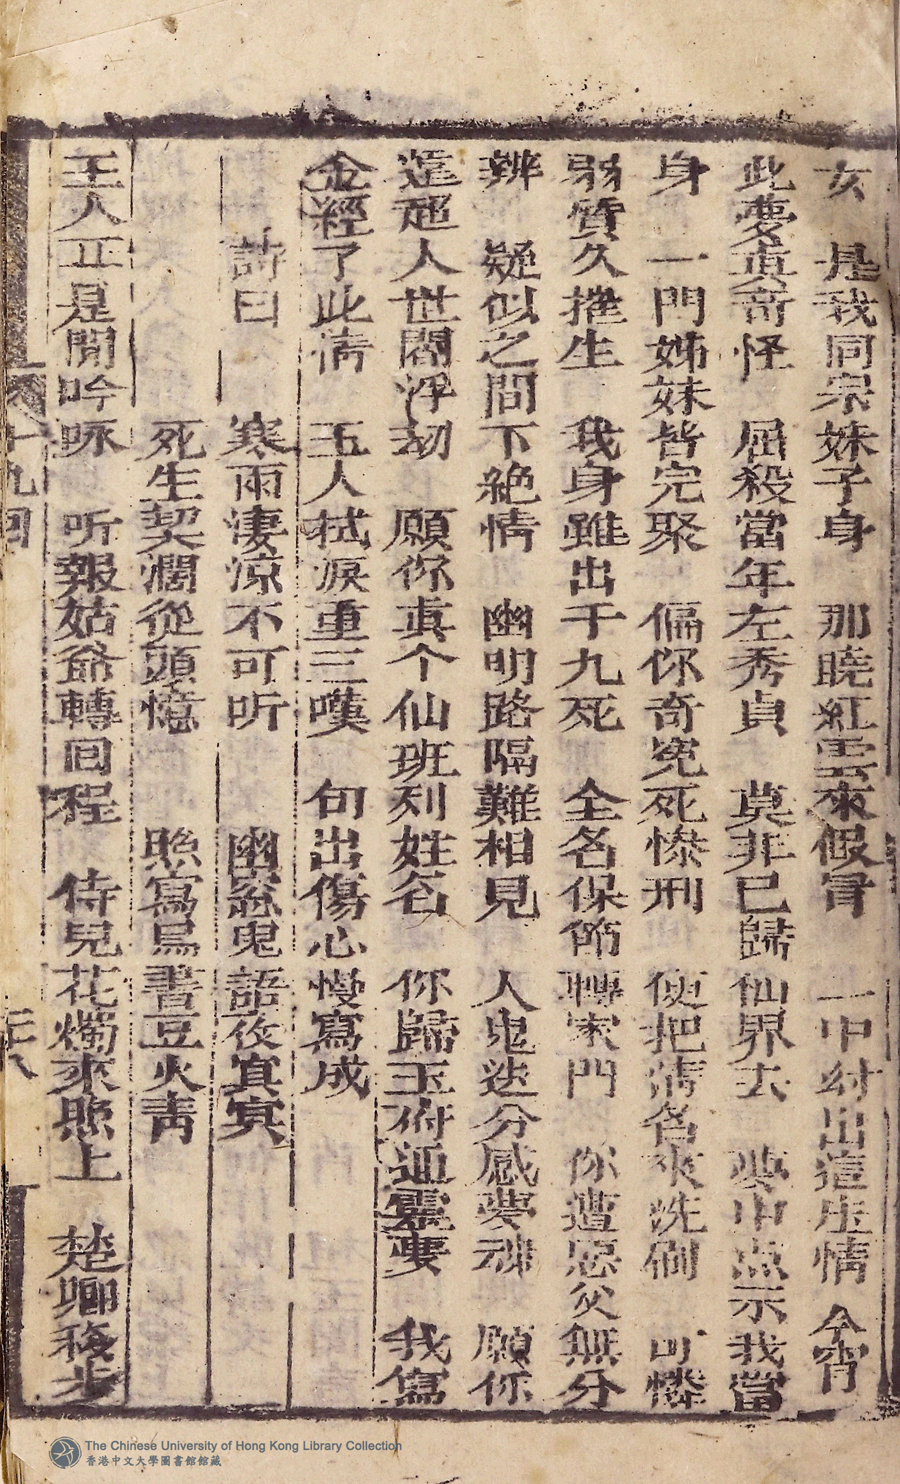 女 是我同宗妹子身 那曉紅雲來假冒 一中対出這庄情 今宵
此夢真奇怪 屈殺當年左秀貞 莫非已歸仙界去 夢中点示我當
身 一門姊妹皆完聚 偏你奇寃死慘刑 便把清名來洗刷 可憐
弱質久摧生 我身雖出于九死 全名保節轉家門 你遭惡父無分
辨 疑似之間下絶情 幽明路隔難相見 人鬼迯分感夢魂 願你
莚迯人世閻浮劫 願你真个仙班列姓名 你歸玉府通靈夢 我寫
金經了此情 玉人拭淚重三嘆 句出傷心慢寫成
詩曰 寒雨淒涼不可听 幽窓鬼語夜寘寘
死生契濶從頭憶 照寫烏書豆火青
玉人正是閒吟咏 听報姑爺轉回程 侍兒花燭來照上 楚卿移步
十九回 三八
The Chinese University of Hong Kong Library Collection
香港中文大學圖書館館藏